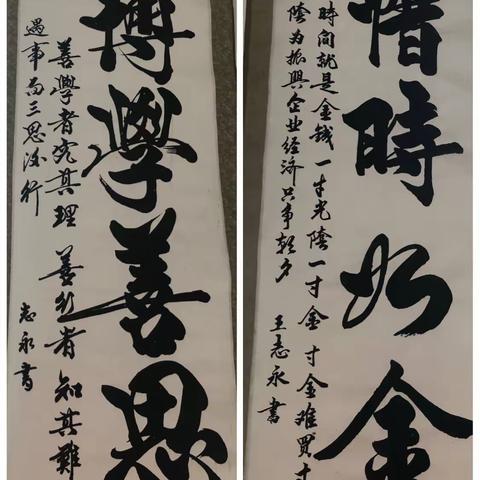 博學善思
善學者究其理 善行者知其難
遇事而三思後行
志永書
惜時如金
時间就是金錢 一寸光陰一寸金 寸金難買寸
陰为振興企业经济只争朝夕
王志永書